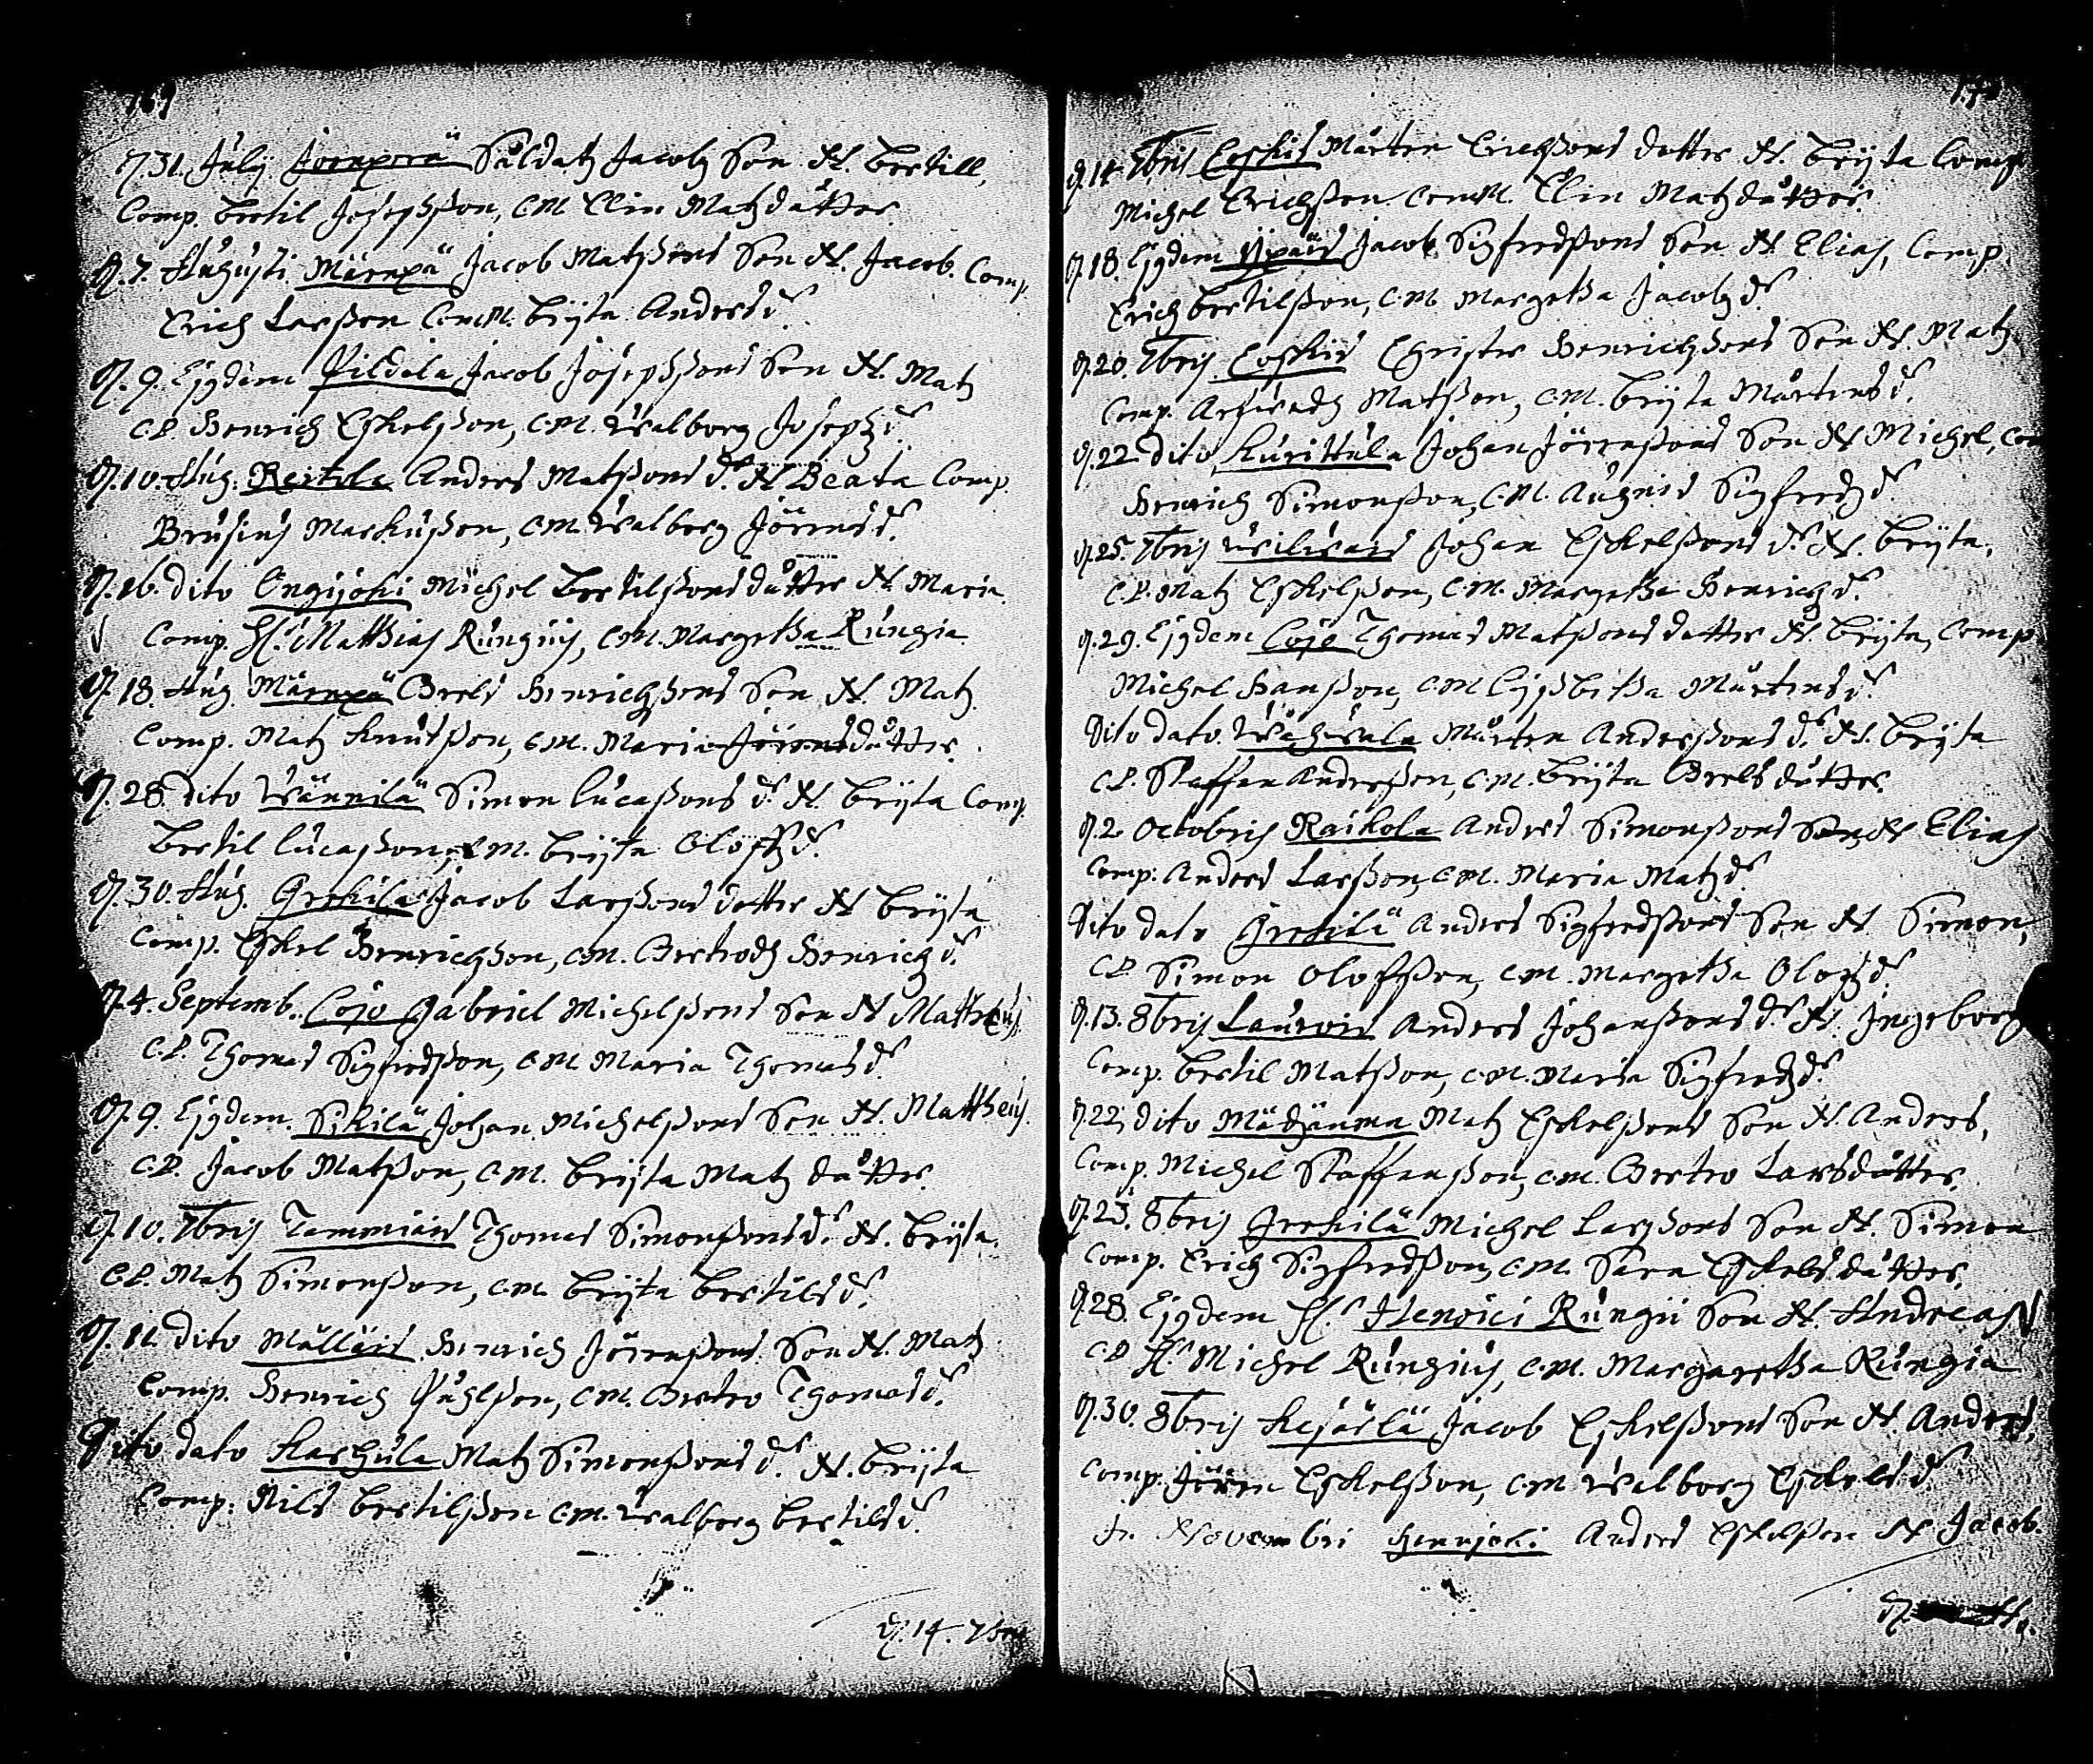 169
D. 31. Julij. Jorexperä Såldatz Jacobz Son N. Bertill,
Comp. Bertil Josephßon, C.M. Elin Matzdåtter.
D. 7. Augusti. Märnpä Jacob Matßons Son N. Jacob. Comp.
Erich Larßon C.M. Brijta Andersd:r
D. 9. Ejgdem Pildola Jacob Josephßons Son N. Matz
C.P. Henrich Eskelßon, C.M. Walborg Josephzd:r
D. 10. Aug. Reitola Anders Matßons d:r N Beata Comp.
Brusius Markußon, C.M. Walborg Jörensd:r
D. 16. dito Ongijoki Michel Bertilßons dåtter N. Maria.
Comp. H:r Matthias Rungius, C.M. Margetha Rungia
D. 18. Aug. Märnpä Grels Henrichßons Son N. Matz.
Comp. Matz Knutßon, C.M. Maria Jörensdåtter.
D. 28. dito Wännilä Simon Lucaßons d:r N. Brijta Comp.
Bertil Lucaßon, C.M. Brijta Oloffzd:r
D. 30. Aug. Grekilä Jacob Larßons dotter N Brijta
Comp. Eskel Henrichßon, C.M. Gertrodh Henrichzd:r
D. 4. Septemb. Cojo Gabriel Michelßons Son N Mattheus.
C.P. Thomas Sigfredßon, C.M. Maria Thomasd:r
D. 9. Ejgdem. Sikilä Johan Michelßons Son N. Mattheus.
C.P. Jacob Matßon, C.M. Brijta Matz dåtter.
D. 10. 7bris Tammiais Thomas Simonßons d:r N. Brijta.
C.P. Matz Simonßon, C.M. Brijta Bertilsd:r
D. 11. dito Mülläis Henrich Jörenßons Son N. Matz
Comp. Henrich Påhlßon, C.M. Gertro Thomasd:r
Dito dato Karhula Matz Simonßons d:r N. Brijta
Comp. Nils Bertilßon C.M. Walborg Bertilsd:r
D. 14. 7bris
170
D. 14. 7bris Coskis Mårten Erichßons dotter N. Brijta Comp
Michel Erichßon C.M. Elin Matzdåtter.
D. 18. Ejgdem Ypäis Jacob Sigfredßons Son N. Elias, Comp.
Erich Bertilßon, C.M. Margetha Jacobzd:r
D. 20. 7bris. Coskis Christer Henrichßons Son N. Matz.
Comp. Arfwedh Matßon, C.M. Brijta Mårtensd:r
D. 22 dito, Kurittula Johan Jörenßons Son N Michel, Com
Henrich Simonßon, C.M. Augnis Sigfredzd:r
D. 25. 7bris Wilwais Johan Eskelßons d:r N. Brijta.
C.P. Matz Eskelßon, C.M. Margetha Henrichzd:r
D. 29. Ejgdem Cojo Thomas Matßons dotter N. Brijta, Comp
Michel Hanßon, C.M Lijßbetha Mårtensd:r
Dito dato. Wähwula Mårten Anderßons d:r N. Brijta
C.P. Staffan Anderßon, C.M. Brijta Grelsdåtter.
D. 2 Octobris Raikola Anders Simonßons Son, N Elias
Comp: Anders Larßon, C.M. Maria Matzd:r
Dito dato Grekilä Anders Sigfredßons Son N. Simon,
C.P. Simon Olofßon, C.M. Margetha Olofzd:r
D. 13. 8bris Laurois Anders Johanßons d:r N. Ingeborg
Comp. Bertil Matßon, C.M. Maria Sigfredzd:r
D. 22, dito Mädzänma Matz Eskelßons Son N. Anders,
Comp. Michel Staffanßon, C.M. Gertro Larsdåtter.
D. 23. 8bris Grekilä Michel Larßons Son N. Simon
Comp. Erich Sigfredßon, C.M. Sara Eskelsdåtter.
D. 28. Ejgdem H:r Henrici Rungii Son N. Andreas
C.P H:r Michel Rungius, C.M. Margaretha Rungia
D. 30. 8bris Kejärlä Jacob Eskelßons Son N. Anders,
Comp. Jören Eskelßon, C.M Walborg Eskelsd:r
Novembri Hennjoki Anders Eskelßon N. Jacob.
D.